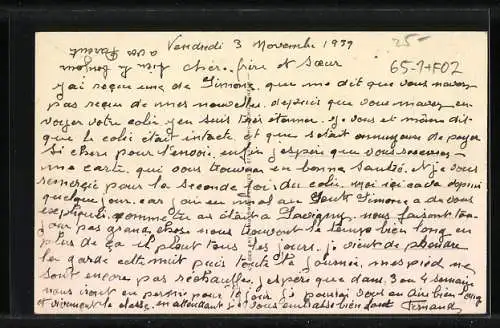 Vendredi 3 Novembre 1939
25-
65-1+F02
bien le bonjour
a vos Parent
cher frère et Sœur
j'ai reçue une de Simone que me dit que vous navez
pas reçue de mes nouvelles depuis que vous mavez en-
voyer votre colis j'en suis très étonner. je vous et même dit
que le colis était intacte et que setait ennuyeux de payer
si cher pour l'envoie enfin j'espère que vous recevrez
ma carte qui vous trouvera en bonne santée. Et je vous
remercie pour la seconde fois du colis. moi ici ca va depuis
quelque jour car j'ai eu mal au Simone a du vous
expliquer comme tu as était a nous faisont tou-
jour pas grand chose nous trouvont le temps bien long en
plus de ça il pleut tous les jours. je vient de prendre
la garde cette nuit puis toute la journée mes pied ne
sont encore pas réchauffer. j'espère que dans 3 ou 4 semaine
nous iront en permission pour 10 jour je pourrai vous en dire bien long
et vivement la classe en attendant je vous embrasse bien fort Fernand